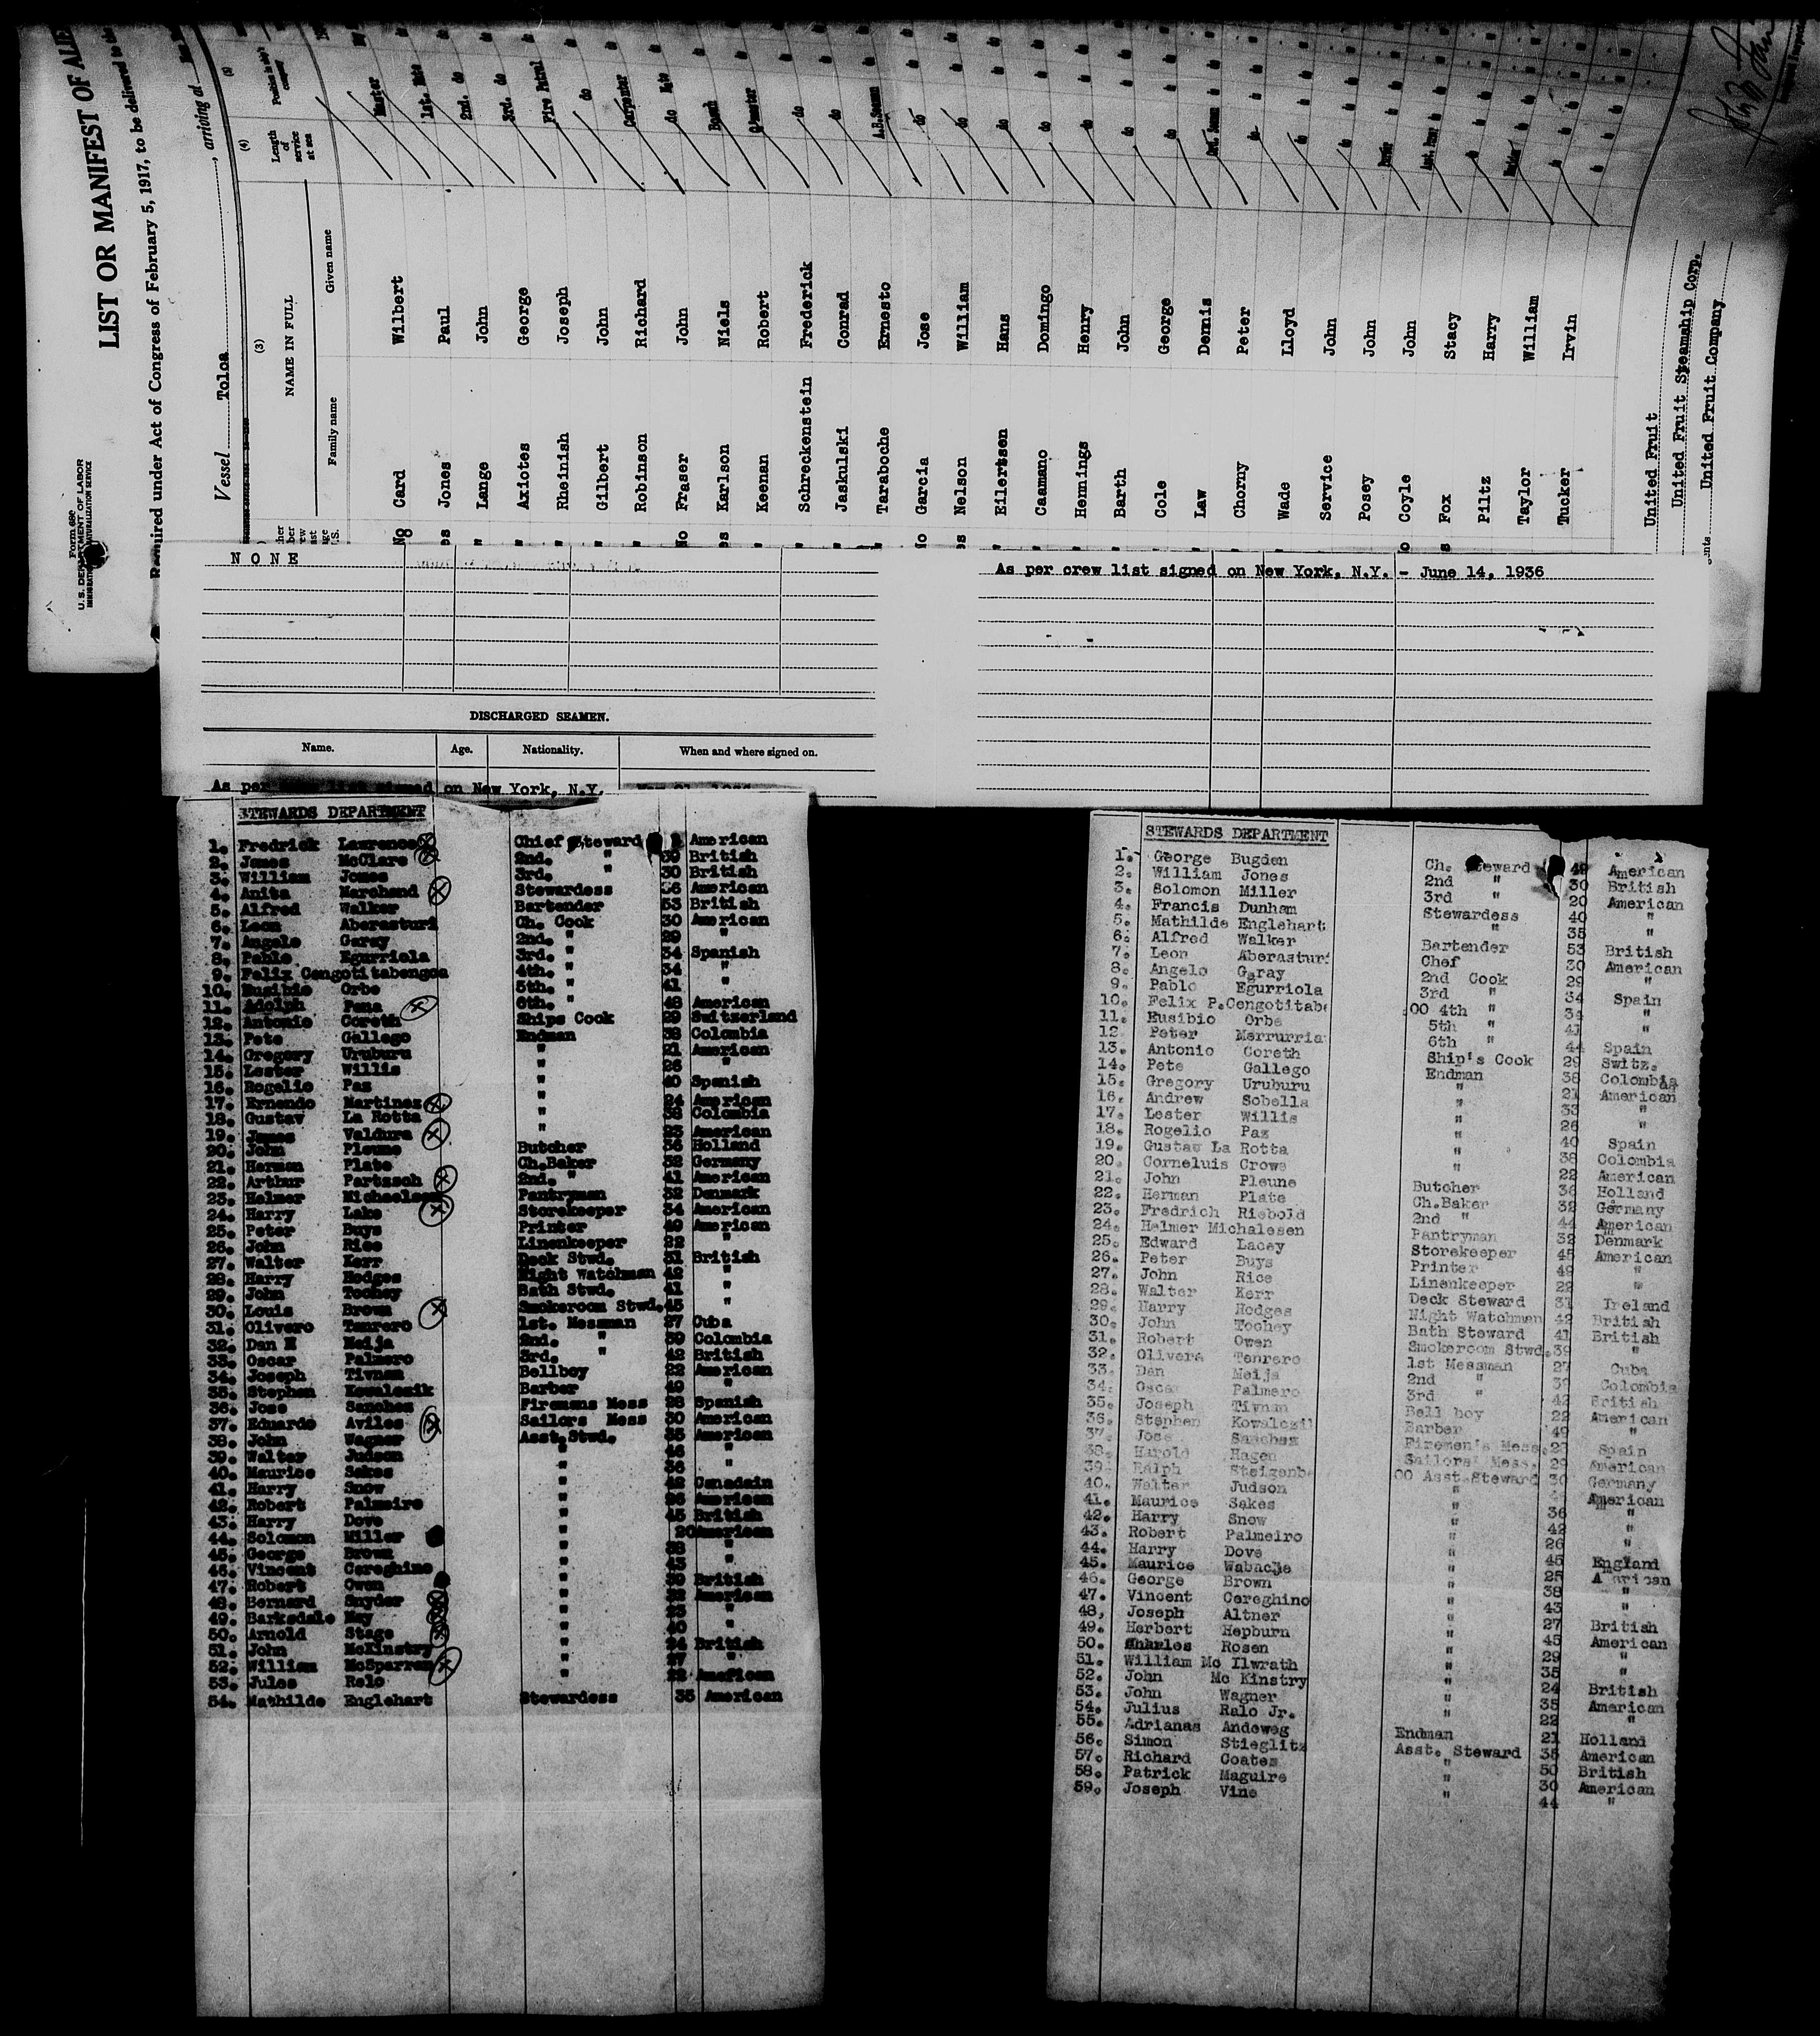 Form 689
U. S. DEPARTMENT OF LABOR
IMMIGRATION NATURALIZATION SERVICE
LIST OR MANIFEST OF
Required under Act of Congress of February 5, 1917, to be delivered to the
Vessel Toloa, arriving at
(3)
NAME IN FULL
Family name Given name
(4)
Length of service at sea
(5)
Position in ship's company
Card Wilbert Master
Jones Paul 1st. Mate
Lange John 2nd. do
Axiotes George 3rd. do
Rheinish Joseph Fire Patrol
Gilbert John do
Robinson Richard Carpenter
Fraser John do
Karlson Niels Bosn
Keenan Robert
Schreckenstein Frederick do
Jaskulski Conrad do
Taraboche Ernesto A.B.Seaman
Garcia Jose do
Nelson William do
Eilertsen Hans do
Caamano Domingo do
Hennings Henry do
Barth John do
Cole George do
Law Dennis
Chorny Peter do
Wade Lloyd do
Service John do
Posey John
Coyle John
Fox Stacy
Piltz Harry
Taylor William
Tucker Irvin
United Fruit
United Fruit Steamship Corp.
United Fruit Company
NONE
DISCHARGED SEAMEN.
Name. Age. Nationality. When and where signed on.
As per signed on New York, N.Y.
STEWARDS DEPARTMENT
1. Fredrick Lawrence Chief Steward American
2. James McClare 2nd. " 39 British
3. William Jones 3rd. " 30 British
4. Anita Marchand Stewardess 36 American
5. Alfred Walker Bartender 53 British
6. Leon Aberasturi Ch. Cook 30 American
7. Angelo Garay 2nd. " 29 "
8. Pablo Egurriola 3rd. " 34 Spanish
9. Felix Cengotitabengoa 4th. " 34 "
10. Eusibio Orbe 5th. " 41 "
11. Adolph Pena 6th. " 48 American
12. Antonio Coreth Ships Cook 29 Switzerland
13. Pete Gallego Endman 38 Colombia
14. Gregory Uruburu " 21 American
15. Lester Willis " 26 "
16. Rogelio Paz " 40 Spanish
17. Ernendo Martinez " 24 American
18. Gustav La Rotta " 38 Colombia
19. James Valdura " 23 American
20. John Pleune Butcher 36 Holland
21. Herman Plate Ch.Baker 32 Germany
22. Arthur Partzsch 2nd. " 41 American
23. Helmer Michaelsen Pantryman 32 Denmark
24. Harry Lake Storekeeper 34 American
25. Peter Buys Printer 49 American
26. John Rice Linenkeeper 22 "
27. Walter Kerr Deck Stwd. 31 British
28. Harry Hodges Night Watchman 42 "
29. John Toohey Bath Stwd. 41 "
30. Louis Brown Smokeroom Stwd. 45 "
31. Olivero Tenrero 1st. Messman 27 Cuba
32. Dan Meija 2nd. " 39 Colombia
33. Oscar Palmero 3rd. " 42 British
34. Joseph Tivnan Bellboy 22 American
35. Stephen Kowalczik Barber 49 "
36. Jose Sanchez Firemans Mess 28 Spanish
37. Eduardo Aviles Sailors Mess 30 American
38. John Wagner Asst.Stwd. 35 American
39. Walter Judson " 46 "
40. Maurice Sakes " 36 "
41. Harry Snow " 42 Canadain
42. Robert Palmeiro " 26 American
43. Harry Dove " 45 British
44. Solomon Miller " 20 American
45. George Brown " 38 "
46. Vincent Cereghino " 43 "
47. Robert Owen " 39 British
48. Bernard Snyder " 22 American
49. Barksdale May " 23 "
50. Arnold Stage " 40 "
51. John McKinstry " 24 British
52. William McSparren " 27 "
53. Jules Relo " 22 American
54. Mathilde Englehart Stewardess 35 American
As per crew list signed on New York, N.Y. - June 14, 1936
STEWARDS DEPARTMENT
1. George Bugden Ch. Steward 49 American
2. William Jones 2nd " 30 British
3. Solomon Miller 3rd " 20 American
4. Francis Dunham Stewardess 40 "
5. Mathilde Englehart " 35 "
6. Alfred Walker Bartender 53 British
7. Leon Aberasturi Chef 30 American
8. Angelo Garay 2nd Cook 29 "
9. Pablo Egurriola 3rd " 34 Spain
10. Felix P.Cengotitabe 4th " 34 "
11. Eusibio Orbe 5th " 41 "
12. Peter Merrurria 6th " 44 Spain
13. Antonio Coreth Ship's Cook 29 Switz.
14. Pete Gallego Endman 38 Colombia
15. Gregory Uruburu " 21 American
16. Andrew Sobella " 33 "
17. Lester Willis " 26 "
18. Rogelio Paz " 40 Spain
19. Gustav La Rotta " 38 Colombia
20. Corneluis Crowe " 22 American
21. John Pleune Butcher 36 Holland
22. Herman Plate Ch.Baker 32 Germany
23. Fredrich Riebold 2nd " 44 American
24. Helmer Michalesen Pantryman 32 Denmark
25. Edward Lacey Storekeeper 45 American
26. Peter Buys Printer 49 "
27. John Rice Linenkeeper 22 "
28. Walter Kerr Deck Steward 31 Ireland
29. Harry Hodges Night Watchman 42 British
30. John Toohey Bath Steward 41 British
31. Robert Owen Smokeroom Stwd. 39 "
32. Olivera Tenrero 1st Messman 27 Cuba
33. Dan Meija 2nd " 39 Colombia
34. Oscar Palmero 3rd " 42 British
35. Joseph Tivnan Bell boy 22 American
36. Stephen Kowalczil Barber 49 "
37. Jose Sanchez Firemen's Mess. 28 Spain
38. Harold Hagen Sailors' Mess. 29 American
39. Ralph Steigenb Asst.Steward 30 Germany
40. Walter Judson " American
41. Maurice Sakes " 36 "
42. Harry Snow " 42 "
43. Robert Palmeiro " 26 "
44. Harry Dove " 45 England
45. Maurice Wabacje " 25 American
46. George Brown " 38 "
47. Vincent Cereghino " 43 "
48, Joseph Altner " 27 British
49. Herbert Hepburn " 45 American
50. Charles Rosen " 29 "
51. William Mc Ilwrath " 35 "
52. John Mc Kinstry " 24 British
53. John Wagner " 35 American
54. Julius Ralo Jr. " 22 "
55. Adrianas Andeweg Endman 21 Holland
56. Simon Stieglitz Asst. Steward 35 American
57. Richard Coates " 50 British
58. Patrick Maguire " 30 American
59. Joseph Vine " 44 "